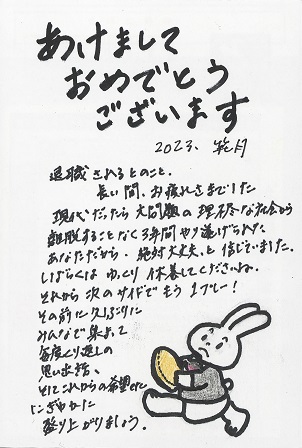 あけまして
おめでとう
ございます
2023、元月
退職されるとのこと。
長い間、お疲れさまでした
現代だったら大問題の理不尽な社会から
離脱することなく3年間やり遂げられた
あなただから、絶対大丈夫と信じていました。
しばらくはゆっくり休養してくださいね。
それから次のサイドでもう1プレー!
その前に久しぶりに
みんなで集まって
毎度くり返しの
思い出話、
そしてこれからの希望
にぎやかに
盛り上がりましょう。